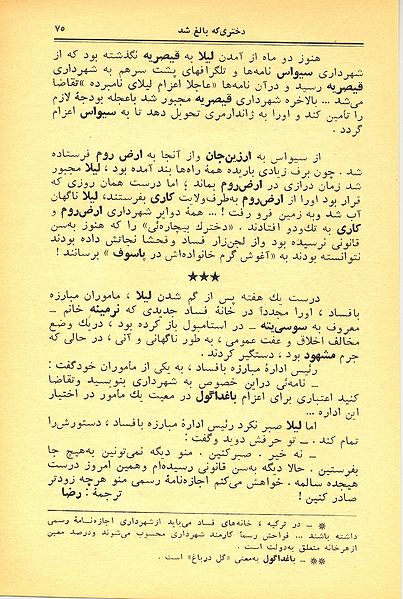 دختری‌که بالغ شد ۷۵
هنوز دو ماه از آمدن لیلا به قیصریه نگذشته بود که از
شهرداری سیواس نامه‌ها و تلگرافهای پشت سرهم به شهرداری
قیصریه رسید و درآن نامه‌ها «عاجلا اعزام لیلای نامبرده »تقاضا
می‌شد ... بالاخره شهرداری قیصریه مجبور شد باعجله بودجهٔ لازم
را تأمین کند و اورا به ژاندارمری تحویل دهد تا به سیواس اعزام
گردد .
از سیواس به ارزین‌جان واز آنجا به ارض روم فرستاده
شد . چون برف زیادی باریده همهٔ راه‌ها بند آمده بود ، لیلا مجبور
شد زمان درازی در ارض‌روم بماند ؛ اما درست همان روزی که
قرار بود اورا از ارض‌روم به‌طرف‌ولایت کاری بفرستند، لیلا ناگهان
آب شد وبه زمین فرو رفت ! ... همهٔ دوایر شهرداری ارض‌روم و
کاری به تك‌ودو افتادند . «دخترك بیچاره‌ئی» را که هنوز به‌سن
قانونی نرسیده بود واز لجن‌زار فساد وفحشا نجاتش داده بودند
نتوانسته بودند به «آغوش گرم خانواده‌اش در باسوف » برسانند !
★★★
درست یك هفته پس از گم شدن لیلا ، ماموران مبارزه
بافساد ، اورا مجدداً در خانهٔ فساد جدیدی که نرمینه خانم ـ
معروف به سوسی‌یته ـ در استامبول باز کرده بود ، دریك وضع
مخالف اخلاق و عفت عمومی ، به طور ناگهانی و آنی ، در حالی که
جرم مشهود بود ، دستگیر کردند .
رئیس ادارهٔ مبارزه بافساد ، به یکی از ماموران خودگفت :
ـ نامه‌ئی دراین خصوص به شهرداری بنویسید وتقاضا
کنید اعتباری برای اعزام باغداگول در معیت یك مأمور در اختیار
این اداره ...
اما لیلا صبر نکرد رئیس ادارهٔ مبارزه بافساد ، دستورش‌را
تمام کند . ـ تو حرفش دوید وگفت :
ـ نه خیر . صبرکنین . منو دیگه نمی‌تونین به‌هیچ جا
بفرستین . حالا دیگه به‌سن قانونی رسیده‌ام وهمین امروز درست
هیجده سالمه . خواهش می‌کنم اجازه‌نامهٔ رسمی منو هرچه زودتر
صادر کنین ! ترجمهٔ : رضا
* ـ در ترکیه ، خانه‌های فساد می‌باید ازشهرداری اجازه‌نامهٔ رسمی
داشته باشند ... فواحش رسماً کارمند شهرداری محسوب می‌شوند ودرصد معین
ازهرخانه متعلق به‌دولت است .
** ـ باغداگول به‌معنی «گل درباغ» است .